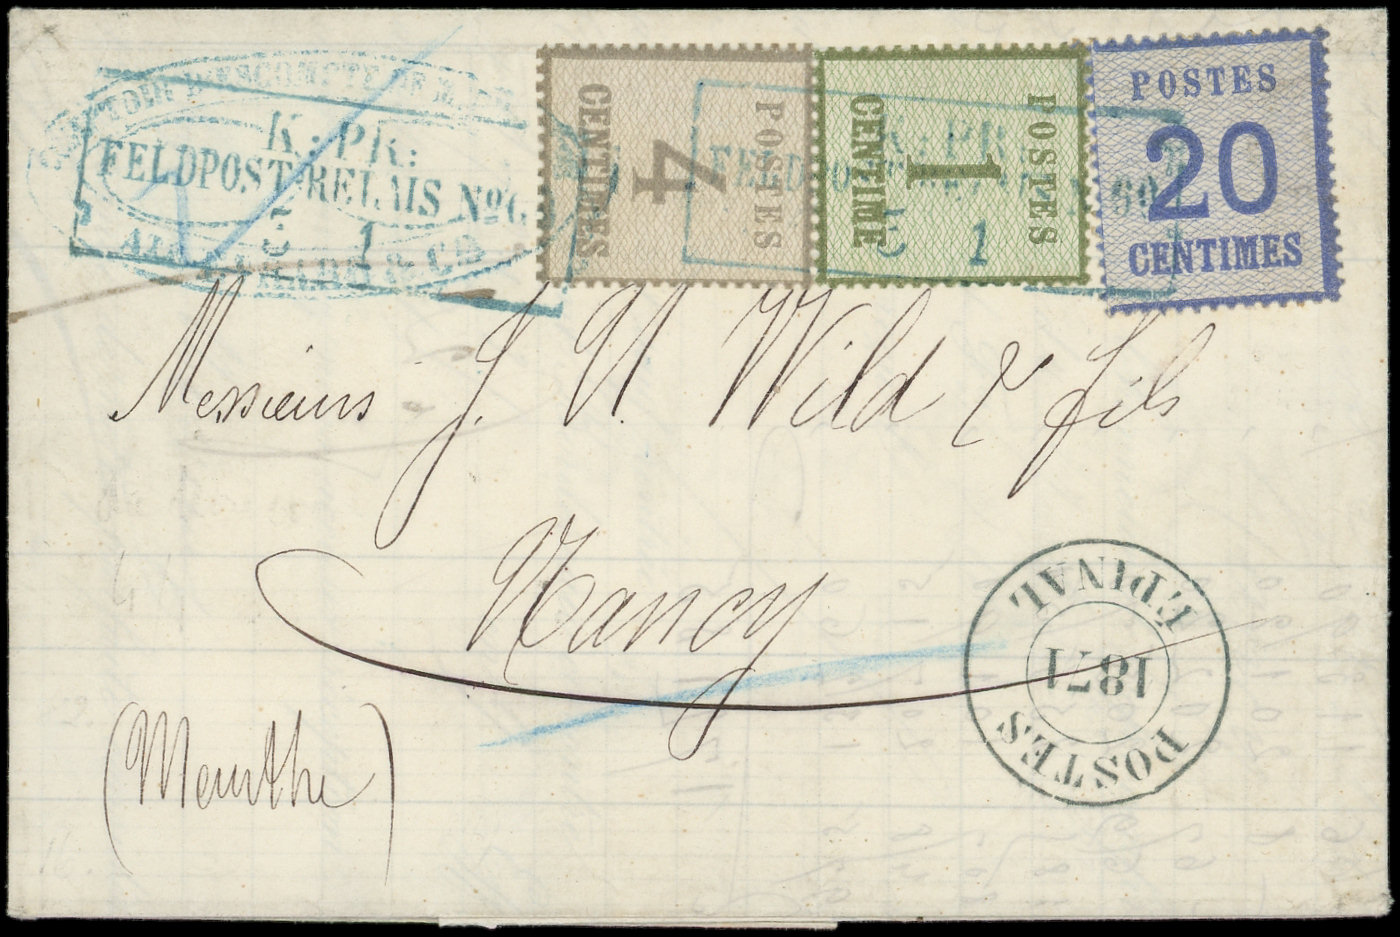 K: PR:
FELDPOST-RELAIS No 6
& Co
4
POSTES
CENTIMES
1
POSTES
CENTIME
1
POSTES
20
CENTIMES
Messieurs J. U. Wild & fils
Nancy
(Meurthe)
EPINAL
1871
POSTES